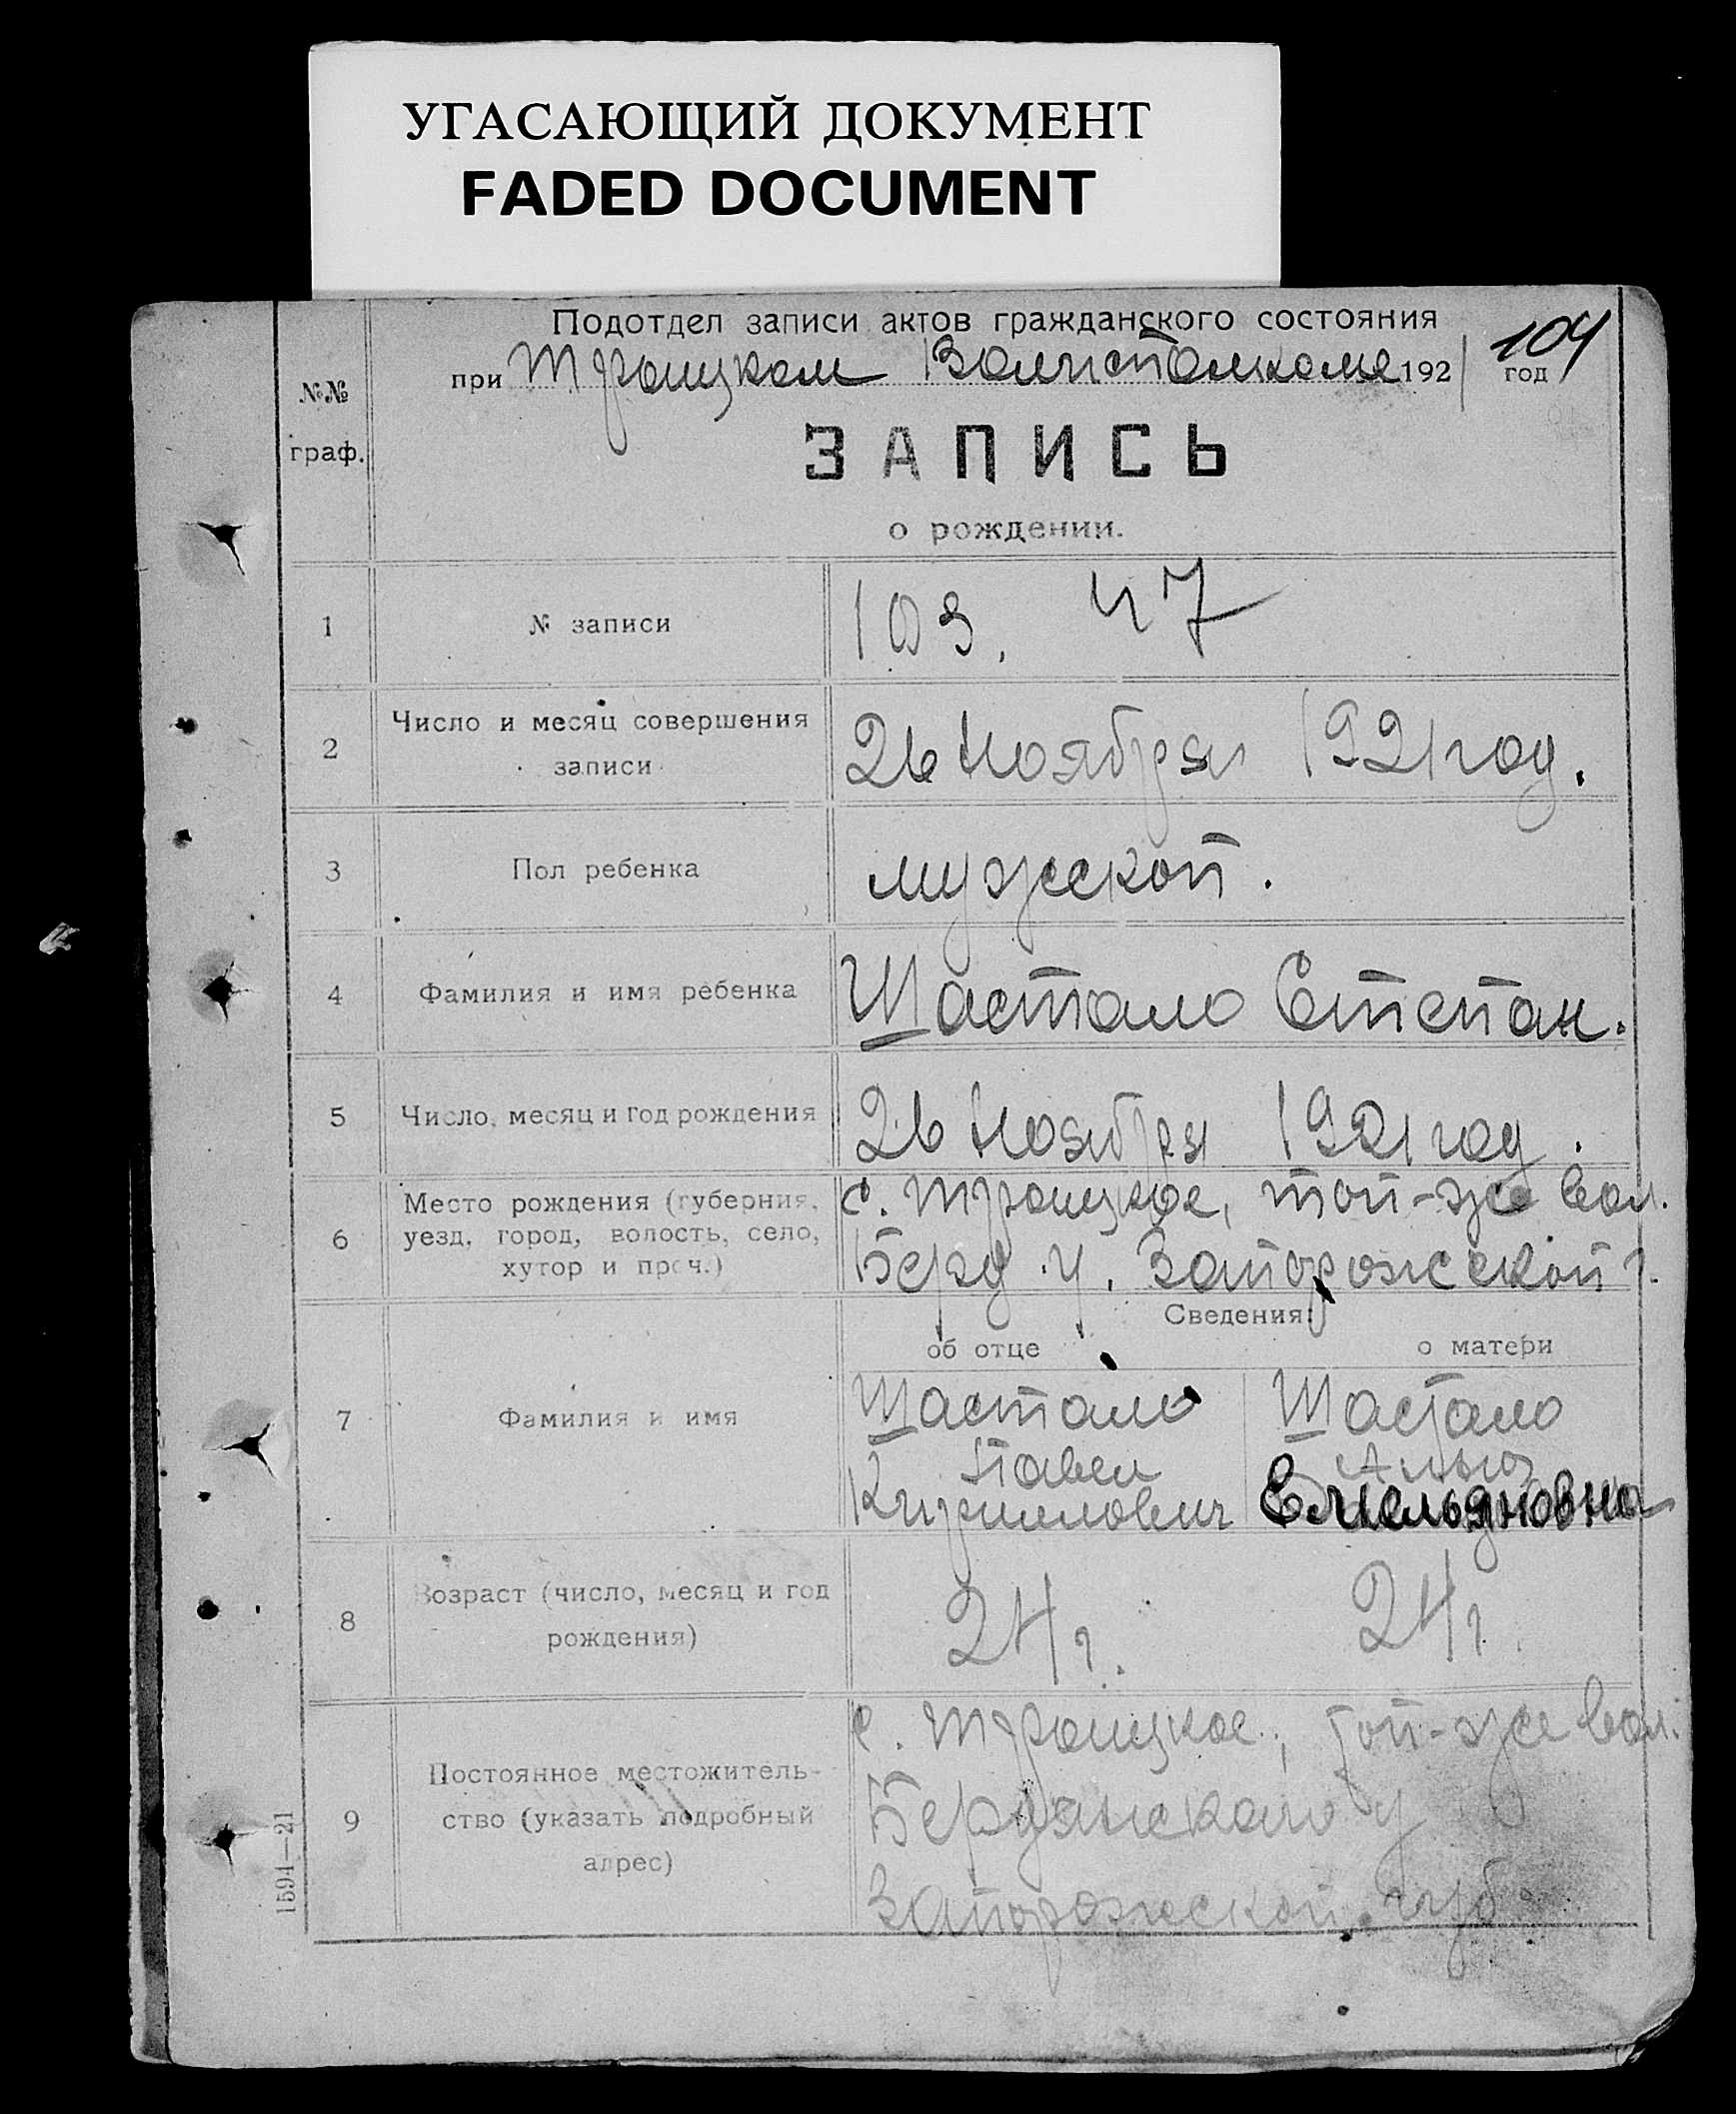 УГАСАЮЩИЙ ДОКУМЕНТ
FADED DOCUMENT
Подотдел записи актов гражданского состояния
при Троицком Волисполкоме 1921 год
104
№№
граф.
ЗАПИСЬ
о рождении.
1 № записи 103. 47
2 Число и месяц совершения
записи
26 Ноября 1921 год.
3 Пол ребенка мужской.
4 Фамилия и имя ребенка Шастало Степан.
5 Число, месяц и год рождения 26 Ноября 1921 год.
6 Место рождения (губерния,
уезд, город, волость, село,
хутор и проч.)
с. Троицкое, той-же вол.
Берд. у. Запорожской г.
Сведения:
об отце о матери
7 Фамилия и имя
Шастало Шастало
Павел
Кирилович Емельяновна
8 Возраст (число, месяц и год
рождения)
24 г. 24 г.
9 Постоянное местожитель-
ство (указать подробный
адрес)
с. Троицкое, той-же вол.
Бердянского у
Запорожской губ.
1594—21